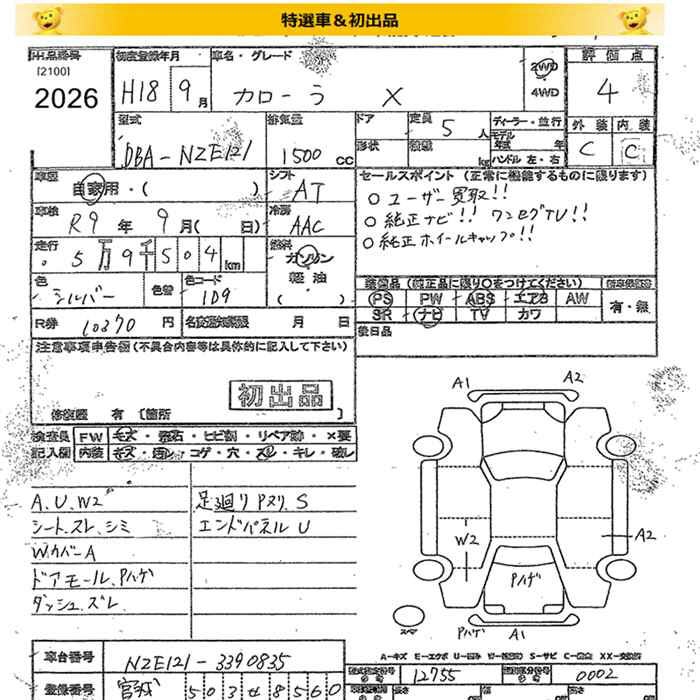 特選車&初出品
出品番号 初度登録年月 車名・グレード 2WD 評価点
[2100]
2026 H18 9月 カローラ X 4WD 4
型式 排気量 ドア 定員 5人 ディーラー・並行 外装 内装
DBA-NZE121 1500cc 形状 積載 kg モデル年式 年式 ハンドル 左・右 C C
車歴 シフト セールスポイント (正常に機能するものに限ります)
自家用・( ) AT ○ ユーザー買取!!
車検 R9年9月(日) 冷房 AAC ○ 純正ナビ!! ワンセグTV!!
走行 5万9千504km 燃料 ガソリン ○ 純正ホイールキャップ!!
軽油
色 シルバー 色替 色コード 1D9 ( )
装備品(純正品に限り○をつけてください)
PS PW ABS エアB AW 有・無
SR ナビ TV カワ
R券 10370円 名変期限 月 日 後日品
注意事項申告欄(不具合内容等は具体的に記入して下さい)
初出品
修復歴 有 [箇所 ]
検査員 FW キズ・飛石・ヒビ割・リペア跡・×要
記入欄 内装 キズ・汚レ・コゲ・穴・スレ・キレ・破レ
A.U.W2 足廻りPヌリ.S
シート.スレ.シミ エンドパネルU
W.カバーA
ドアモール.Pハゲ
ダッシュ.ズレ
A1 A2
W2 A2
Pハゲ
スペア Pハゲ A1
A-キズ E-エクボ U-凹み W-補修跡 S-サビ C-腐食 XX-交換済
車台番号 NZE121-3390835
12755 0002
登録番号 宮城 503 せ 8560